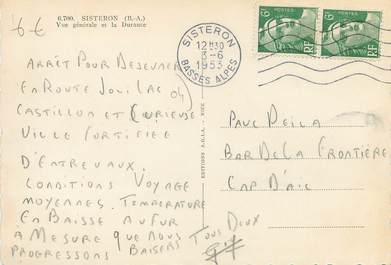 6€
6.700. SISTERON (B.-A.)
Vue générale et la Durante
ARRÊT POUR DEJEUNER
EN ROUTE JOLI LAC
CASTILLON ET CURIEUSE
VILLE FORTIFIEE
D'ENTREVAUX.
CONDITIONS VOYAGE
MOYENNES. TEMPERATURE
EN BAISSE AU FUR
À MESURE QUE NOUS
PROGRESSONS BAISERS TOUS DEUX
04
EDITIONS
NICE
SISTERON
12H30
3-6
1953
BASSES ALPES
6F
RF
6F
RF
PAUL
BAR DE LA FRONTIÈRE
CAP D'AIL